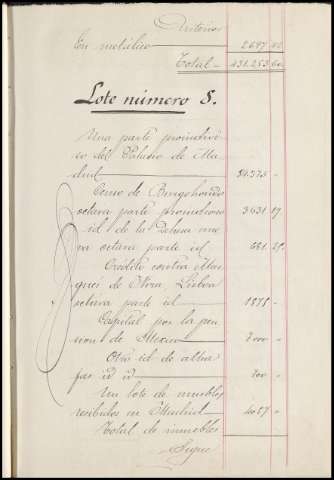 Anterior
En metálico 2697 40
Total 431.253 60
Lote número 8.
Una parte proindivi-
so del Palacio de Ma-
drid 81.375 "
Censo de Burgohondo
octava parte proindiviso 3631 19
id. de la Dehesa nue-
va octava parte id. 681 25
Crédito contra Mar-
qués de Nora Lisboa
octava parte id. 1875 "
Capital por la pen-
sion de Mexico 2000 "
Otro id. de alba-
jas id. id. 200 "
Un lote de muebles
recibidos en Madrid 4057 "
Total de inmuebles
Sigue